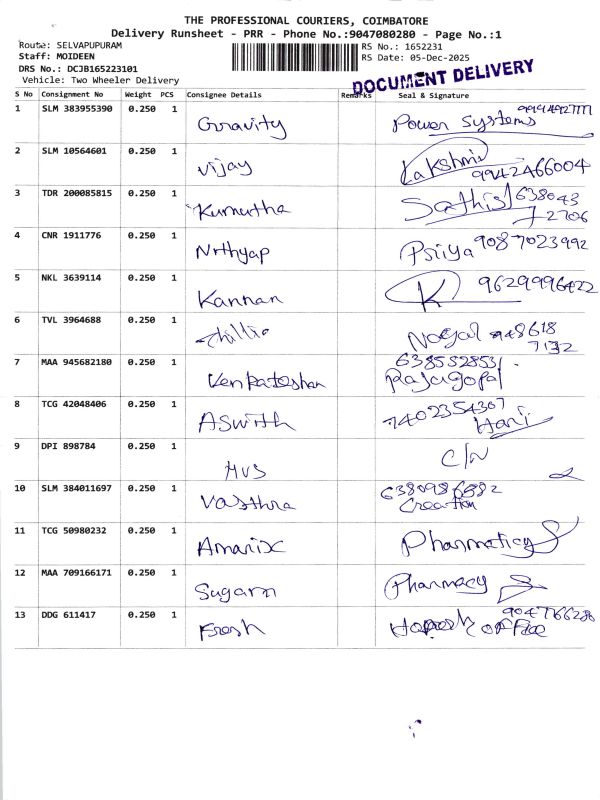 THE PROFESSIONAL COURIERS, COIMBATORE
Delivery Runsheet - PRR - Phone No.:9047080280 - Page No.:1
Route: SELVAPUPURAM
Staff: MOIDEEN
DRS No.: DCJB165223101
Vehicle: Two Wheeler Delivery
RS No.: 1652231
RS Date: 05-Dec-2025
DOCUMENT DELIVERY
S No Consignment No Weight PCS Consignee Details Remarks Seal & Signature
1 SLM 383955390 0.250 1 Guravity Power Systems
2 SLM 10564601 0.250 1 Vijay Lakshmi 9942466004
3 TDR 200085815 0.250 1 Kumutha Sathis 638043
72706
4 CNR 1911776 0.250 1 Nrthyap Priya 9087023992
5 NKL 3639114 0.250 1 Kannan K 9629996422
6 TVL 3964688 0.250 1 Nagal 948618
7132
7 MAA 945682180 0.250 1 Venkateshan 638552853
Rajagopal
8 TCG 42048406 0.250 1 Aswith 7402354307
Hani
9 DPI 898784 0.250 1 MVS C/N
10 SLM 384011697 0.250 1 Vasthra 6380986582
Creation
11 TCG 50980232 0.250 1 Amarix Pharmaticy
12 MAA 709166171 0.250 1 Sugarn Pharmacy
13 DDG 611417 0.250 1 Fresh 9047766286
office